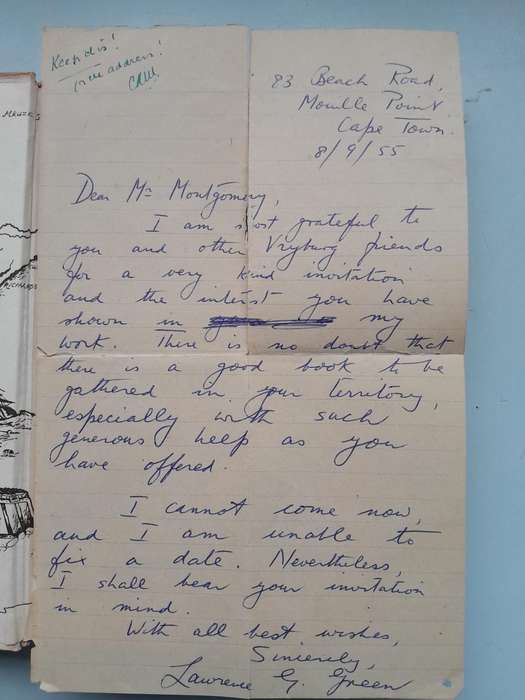 Keep dis!
address!
83 Beach Road,
Mouille Point
Cape Town.
8/9/55
Dear Mr Montgomery,
I am most grateful to
you and other Vryburg friends
for a very kind invitation
and the interest you have
shown in my
work. There is no doubt that
there is a good book to be
gathered in your territory,
especially with such
generous help as you
have offered.
I cannot come now,
and I am unable to
fix a date. Nevertheless,
I shall bear your invitation
in mind.
With all best wishes,
Sincerely,
Lawrence G. Green